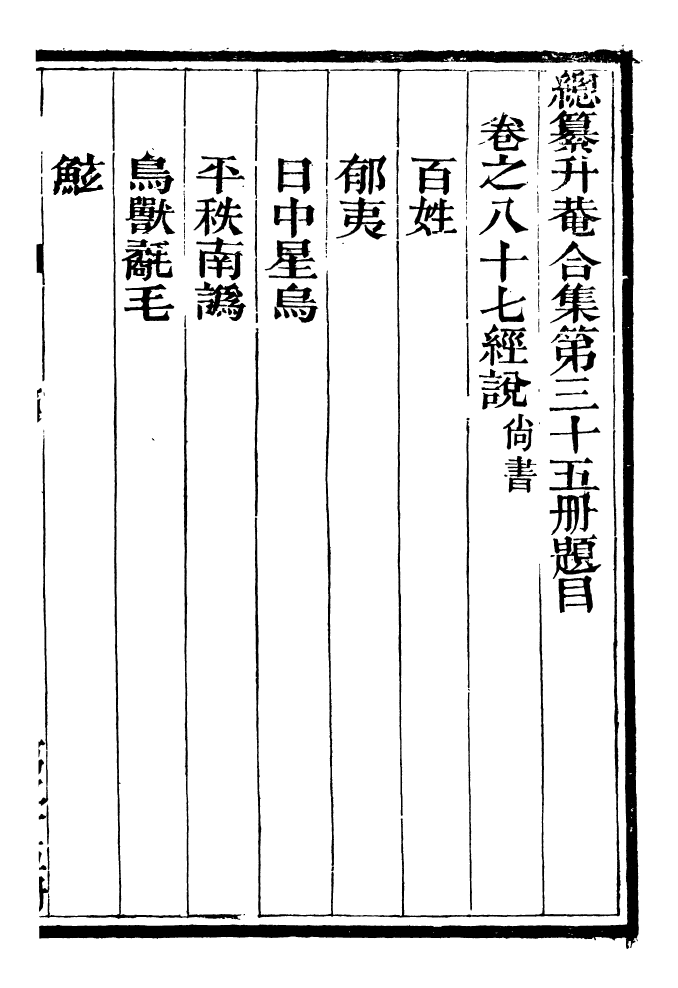 總纂升菴合集第三十五册題目
卷之八十七經說尙書
百姓
郁夷
日中星鳥
平秩南譌
鳥獸氄毛
鮌